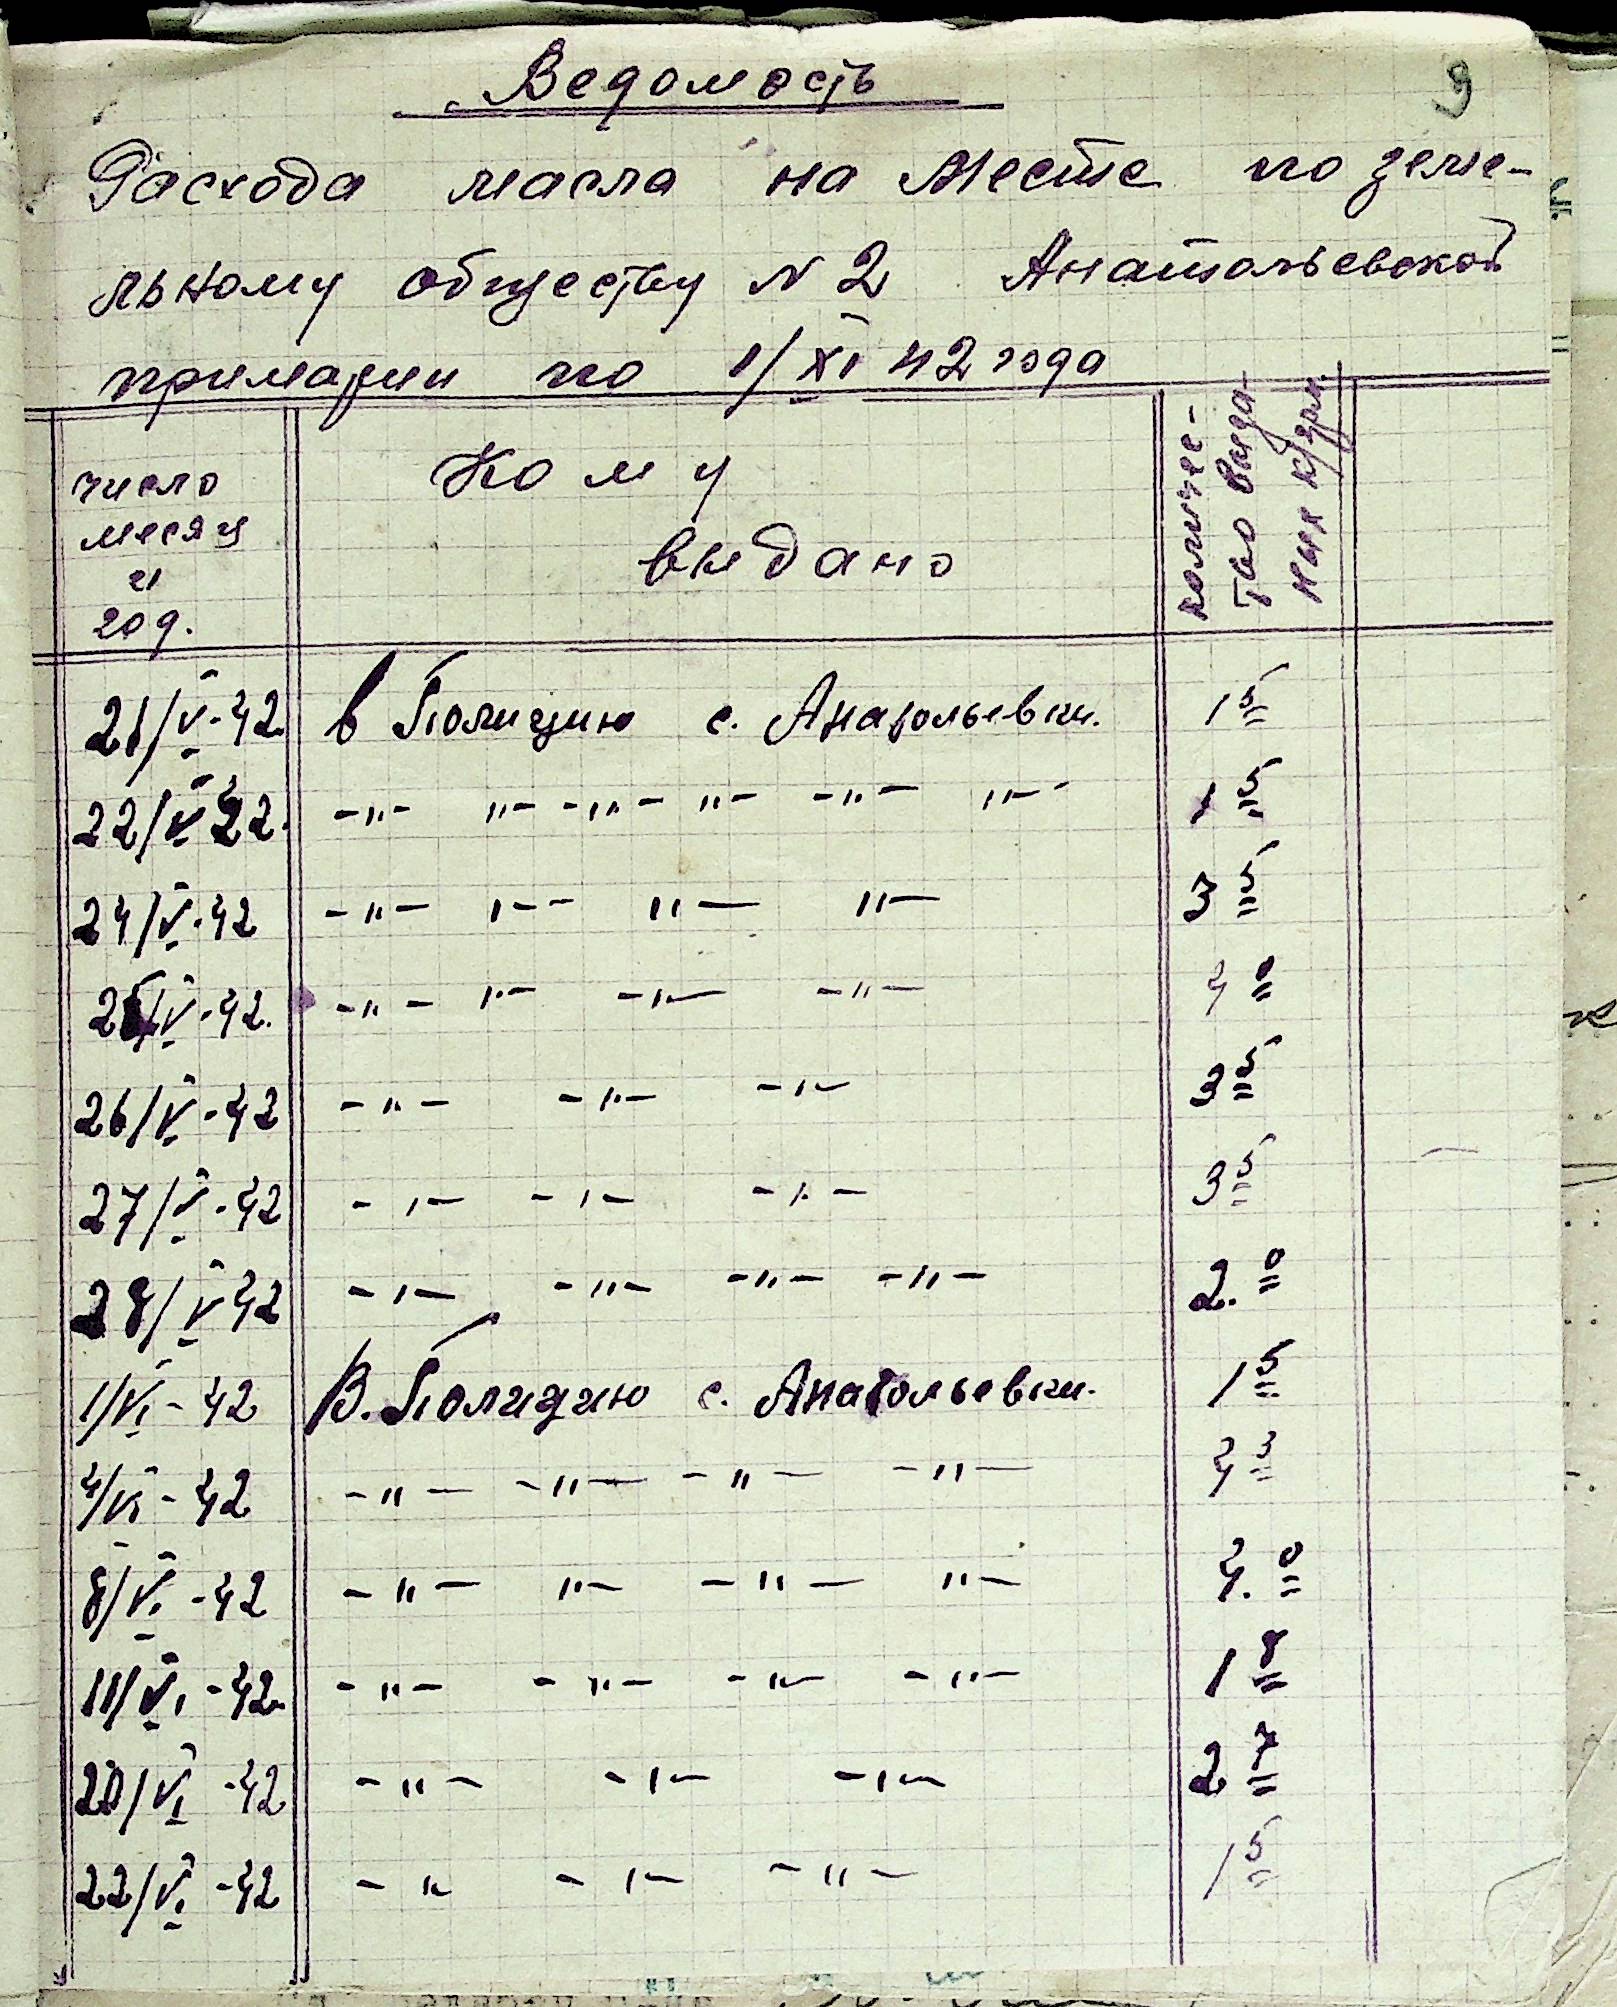 Ведомость
9
Расхода масла на Месте по земе-
льному обществу N 2 Анатольевской
примарии по 1/XI 42 года
число
месяц
и
год.
Кому
выдано
количес-
тво выда-
ных к/грм.
21/V-42. в Полицию с. Анатольевки. 1 5
22/V 42. -"- "- -"- "- -"- "- 1 5
24/V-42 -"- "- "- "- 3 5
25/V-42. -"- "- -"- -"- 4 0
26/V-42 -"- -"- -"- 3 5
27/V-42 -"- -"- -"- 3 5
28/V 42 -"- -"- -"- -"- 2. 0
1/VI-42 В. Полицию с. Анатольевки. 1 5
4/VI-42 -"- -"- -"- -"- 4 3
8/VI-42 -"- "- -"- "- 4. 0
11/VI-42. -"- -"- -"- -"- 1 8
20/VI-42 -"- -"- -"- 2 7
22/VI-42 -" -"- -"- 1 5